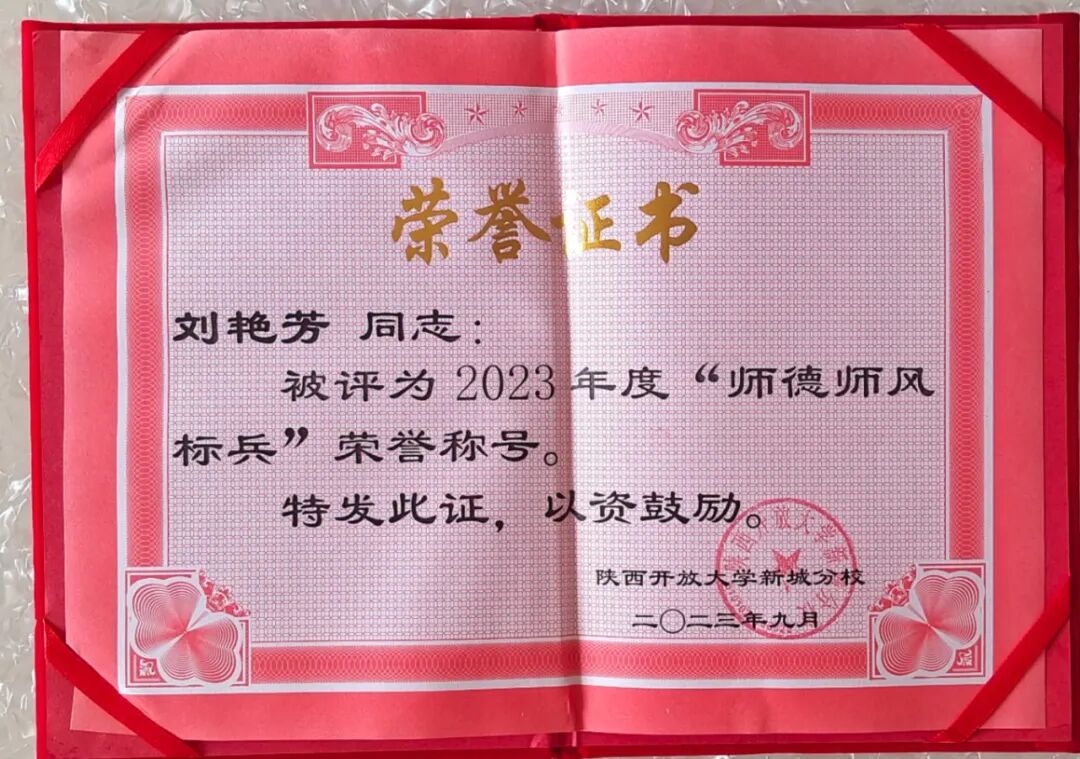 荣誉证书
刘艳芳 同志：
被评为 2023 年度“师德师风
标兵”荣誉称号。
特发此证，以资鼓励。
陕西开放大学新城分校
二〇二三年九月